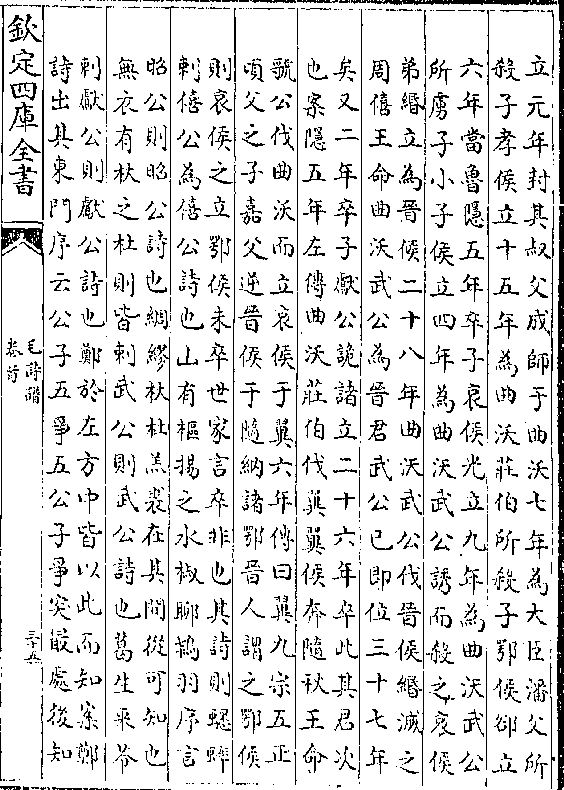 立元年封其叔父成師于曲沃七年為大臣潘父所
殺子孝侯立十五年為曲沃莊伯所殺子鄂侯郤立
六年當魯隱五年卒子哀侯光立九年為曲沃武公
所虜子小子侯立四年為曲沃武公誘而殺之哀侯
弟緡立為晉侯二十八年曲沃武公伐晉侯緡滅之
周僖王命曲沃武公為晉君武公已即位三十七年
矣又二年卒子獻公詭諸立二十六年卒此其君次
也案隱五年左傳曲沃莊伯伐翼翼侯奔隨秋王命
虢公伐曲沃而立哀侯于翼六年傳曰翼九宗五正
頃父之子嘉父逆晉侯于隨納諸鄂晉人謂之鄂侯
則哀侯之立鄂侯未卒世家言卒非也其詩則蟋蟀
刺僖公為僖公詩也山有樞揚之水椒聊鴇羽序言
昭公則昭公詩也綢繆杕杜羔裘在其間從可知也
無衣有杕之杜則皆刺武公則武公詩也葛生采苓
刺獻公則獻公詩也鄭於左方中皆以此而知案鄭
詩出其東門序云公子五爭五公子爭突最處後知
欽定四庫全書
毛詩譜
卷首
三十五